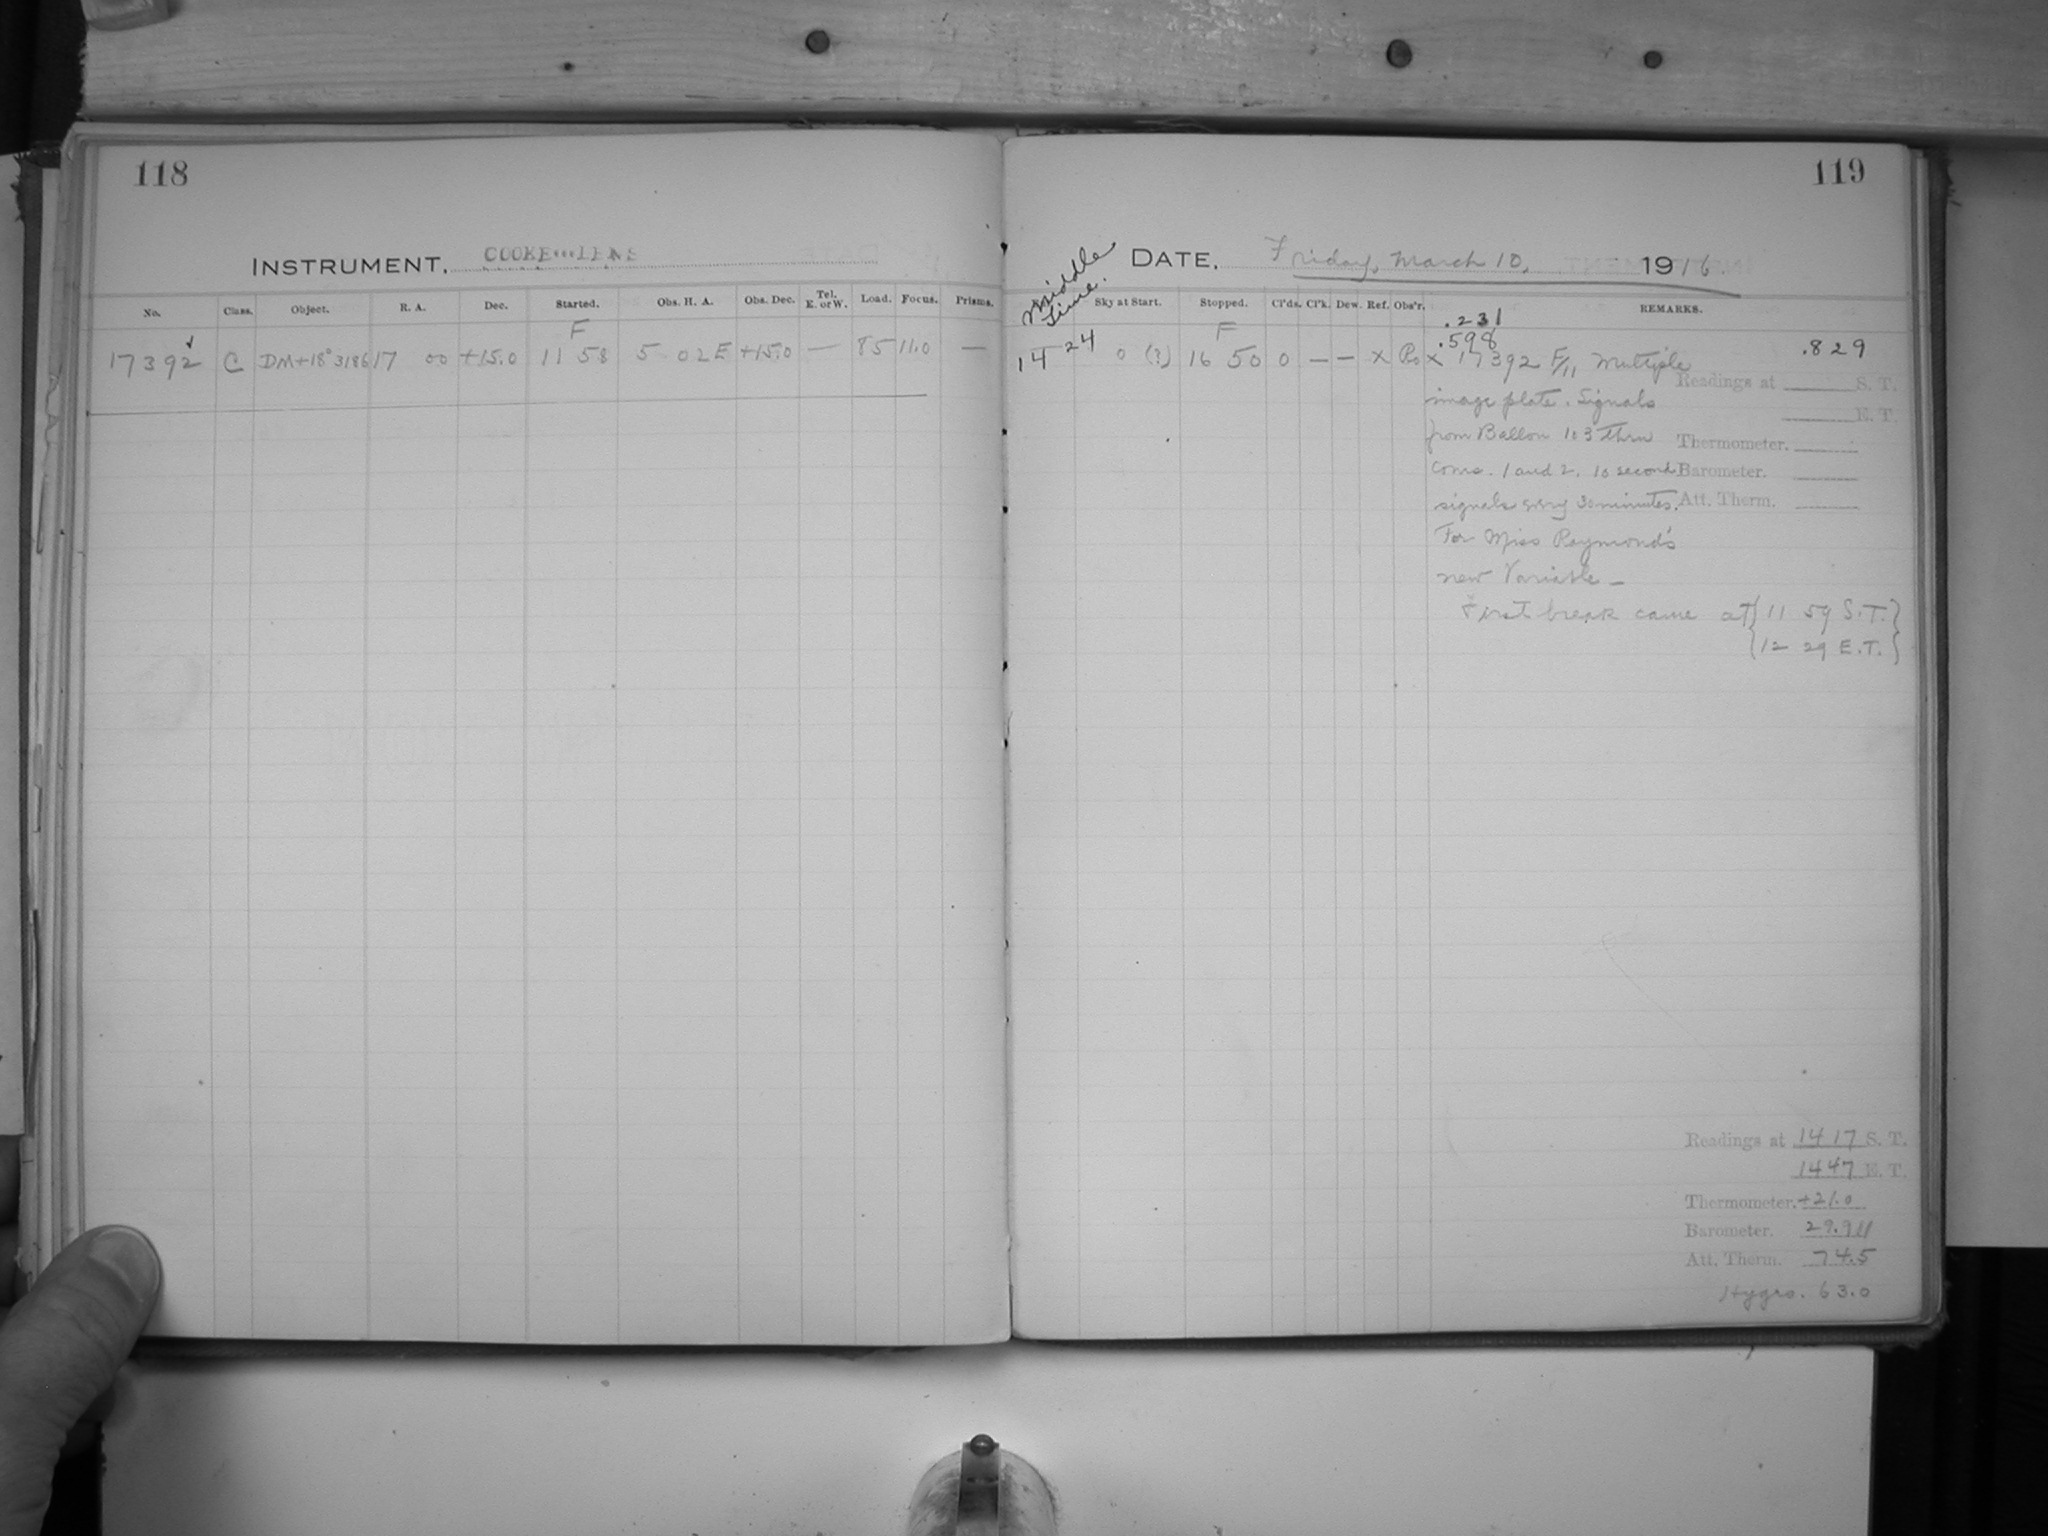 118
INSTRUMENT. COOKE LENS
No. Class. Object. R. A. Dec. Started. Obs. H. A. Obs. Dec. Tel. E. or W. Load. Focus. Prisms.
F
17392 C DM+18°3186 17 00 +15.0 11 58 5 02 E +15.0 — 85 11.0 —
119
Middle Time.
DATE. Friday, March 10, 1916
Sky at Start. Stopped. Cl'ds. Cl'k. Dew. Ref. Obs'r. REMARKS.
.231
F .598
14 24 0 (?) 16 50 0 — — X Ro x 17392 F/11 Multiple .829
image plate. Signals
from Ballou 103 thru
Coms. 1 and 2. 10 second
signals every 30 minutes.
For Miss Raymond's
new Variable —
First break came at { 11 59 S.T. }
{ 12 29 E.T. }
Readings at S. T.
E. T.
Thermometer.
Barometer.
Att. Therm.
Readings at 14 17 S. T.
14 47 E. T.
Thermometer. +21.0
Barometer. 29.911
Att. Therm. 74.5
Hygro. 63.0